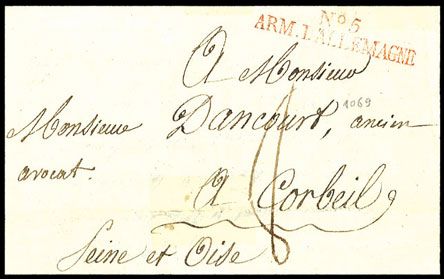 No 5
ARM. D'ALLEMAGNE
A Monsieur
Monsieur Dancourt, ancien
1069
avocat.
A Corbeil
8
Seine et Oise